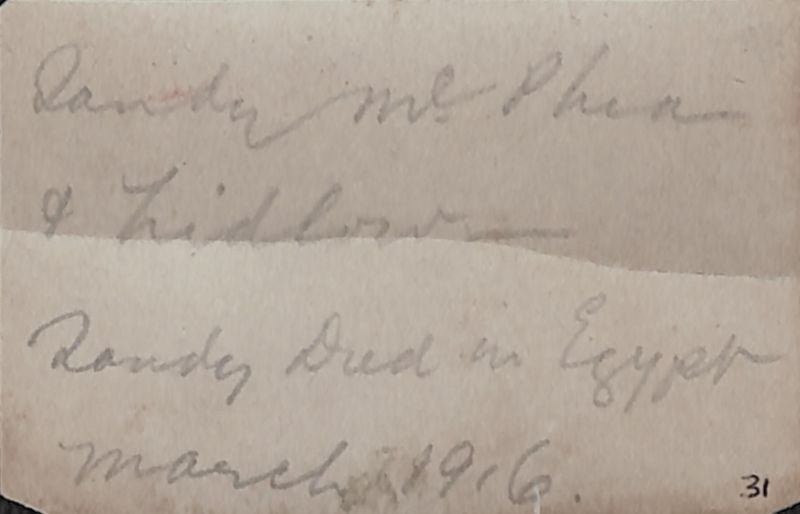 Sandy McPhea
&
Sandy Died in Egypt
March 1916.
31